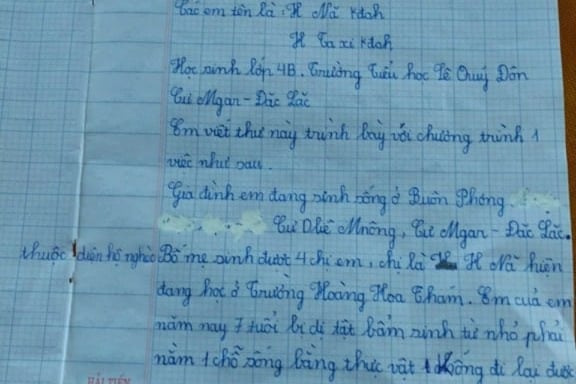 Các em tên là : H Nă Kđoh
H Ta xi Kđoh
Học sinh lớp 4B. Trường Tiểu học Lê Quý Đôn
Cư Mgar - Đăc Lăc
Em viết thư này trình bày với chương trình 1
việc như sau.
Gia đình em đang sinh sống ở Buôn Phơng
Cư Dliê Mnông, Cư Mgar - Đăc Lăc.
thuộc diện hộ nghèo Bố mẹ sinh được 4 chị em, chị là H Nă hiện
đang học ở Trường Hoàng Hoa Thám. Em của em
năm nay 7 tuổi bị dị tật bẩm sinh từ nhỏ phải
nằm 1 chỗ sống bằng thực vật không đi lại được
HẢI TIẾN